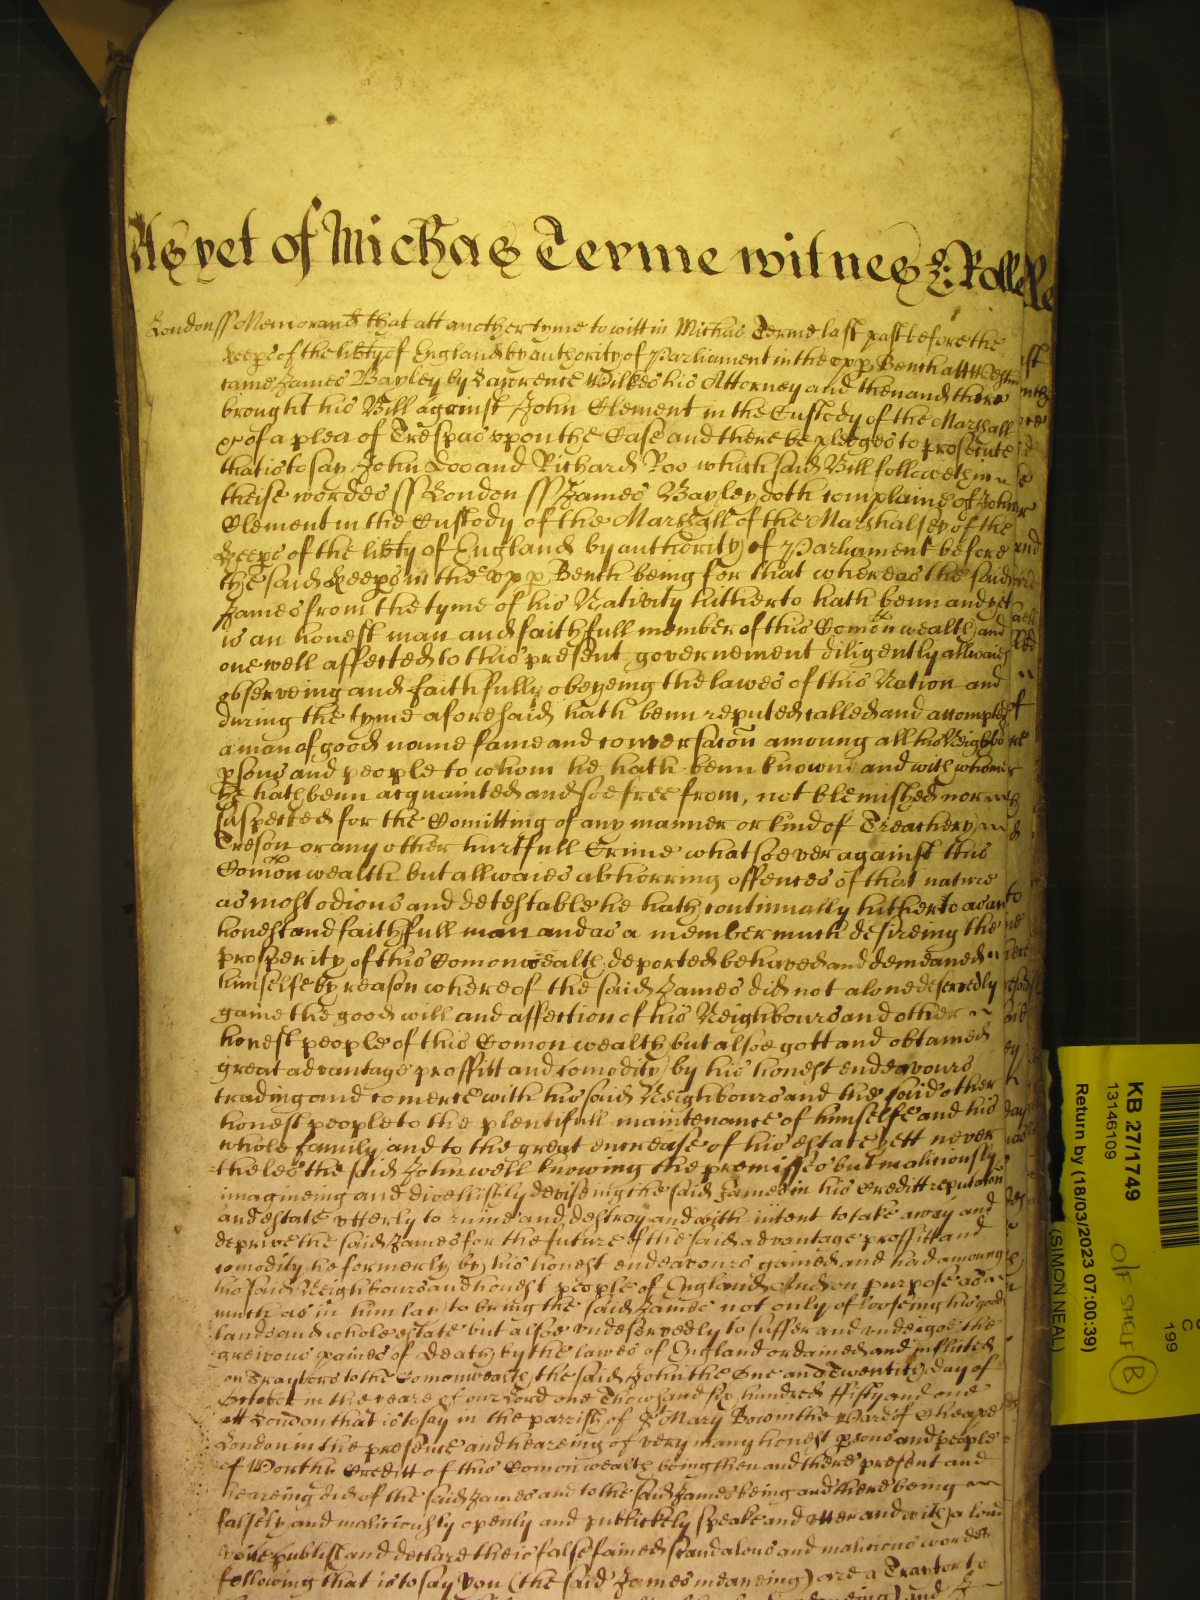 As yet of Michas Terme witnes H: Rolle
London ss Memorand that att another tyme to witt in Michas Terme last past before the
keeps of the libty of England by authority of Parliament in the upp Bench att Westm
came James Bayley by Lawrence Wilkes his Attorney and then and there
brought his Bill against John Clement in the Custody of the Marshall
&c of a plea of Trespas upon the Case and there be pledges to prosecute
that is to say John Doo and Richard Roo which said Bill followeth in
theise wordes ss London ss James Bayley doth complaine of John
Clement in the Custody of the Marshall of the Marshalsey of the
keeps of the libty of England by authority of Parliament before
the said keeps in the upp Bench being for that whereas the said
James from the tyme of his Nativity hitherto hath benn and yet
is an honest man and faithfull member of this Comon wealth and
one well affected to this present governement diligently allwaies
observeing and faithfully obeyeing the lawes of this Nation and
during the tyme aforesaid hath benn reputed called and accompted
a man of good name fame and conversacon amoung all his Neighbo
psons and people to whom he hath benn knowne and with whome
he hath benn acquainted and soe free from, not blemished nor
suspected for the Comitting of any manner or kind of Treachery
Treson or any other hurtfull Crime whatsoever against this
Comon wealth but allwaies abhorring offences of that nature
as most odious and detestable he hath continually hitherto as an
honest and faithfull man and as a member much desireing the
prosperity of this Comonwealth deported behaved and demeaned
himselfe by reason whereof the said James did not alone deservedly
gaine the good will and affection of his Neighbours and other
honest people of this Comon wealth but alsoe gott and obtained
great advantage proffitt and comodity by his honest endeavours
trading and comerce with his said Neighbours and the said other
honest people to the plentifull maintenance of himselfe and his
whole family and to the great encrease of his estate yett never
theles the said John well knowing the premisses but maliciously
imagineing and divellishly deviseing the said James in his Creditt reputacon
and estate utterly to ruine and destroy and with intent to take away and
deprive the said James for the future of the said advantage proffitt and
comodity he formerly by his honest endeavours gained and had amoung
his said Neighbours and honest people of England And on purpose as
much as in him lay to bring the said James not only of looseing his good
lands and whole estate but alsoe undeservedly to suffer and undergoe the
greivous paines of death by the lawes of England ordained and inflicted
on Traytors to the Comonwealth the said John the One and Twentith day of
October in the yeare of our Lord one Thowsand six hundred ffifty and one
att London that is to say in the parrish of St Mary Bow in the Ward of Cheape
London in the presence and heareing of very many honest psons and people
of Worth Creditt of this Comon wealth being then and there present and
heareing did of the said James and to the said James being and there being
falsely and maliciously openly and publickely speake and utter and with a loud
voice publish and declare theis false fained scandalous and malicious wordes
following that is to say You (the said James meaneing) are a Traytor to
KB 27/1749
13146109
Return by (18/03/2023 07:00:39)
(SIMON NEAL)
O/F SHELF B
C
199